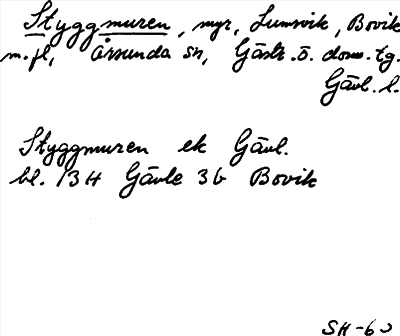 Styggmuren, myr, Lumsvik, Bovik
m.fl, Årsunda sn, Gästr. ö. doms.tg.
Gävl. l.
Styggmuren ek Gävl.
bl. 13H Gävle 3b Bovik
SH-60